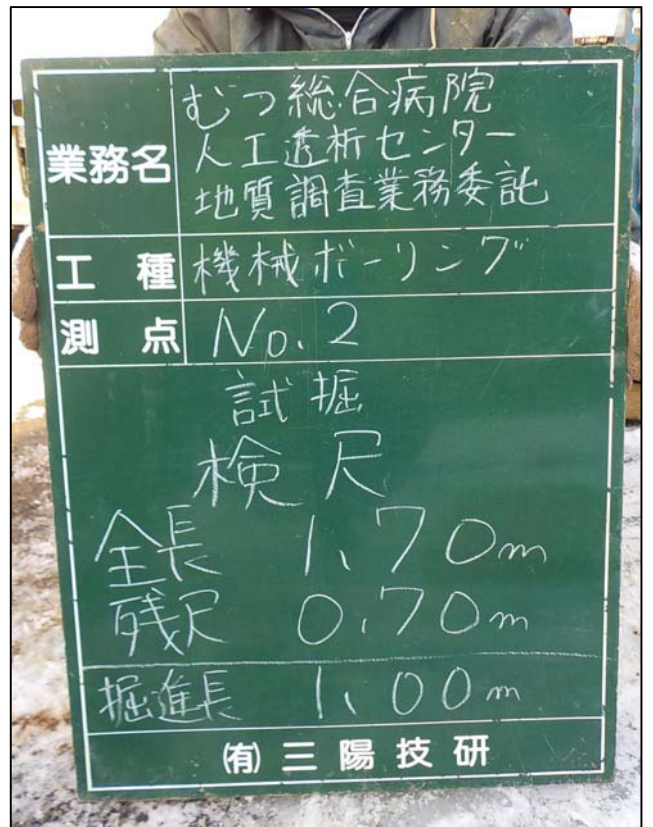 業務名
むつ総合病院
人工透析センター
地質調査業務委託
工種 機械ボーリング
測点 No.2
試掘
検尺
全長 1.70m
残尺 0.70m
掘進長 1.00m
㈲三陽技研